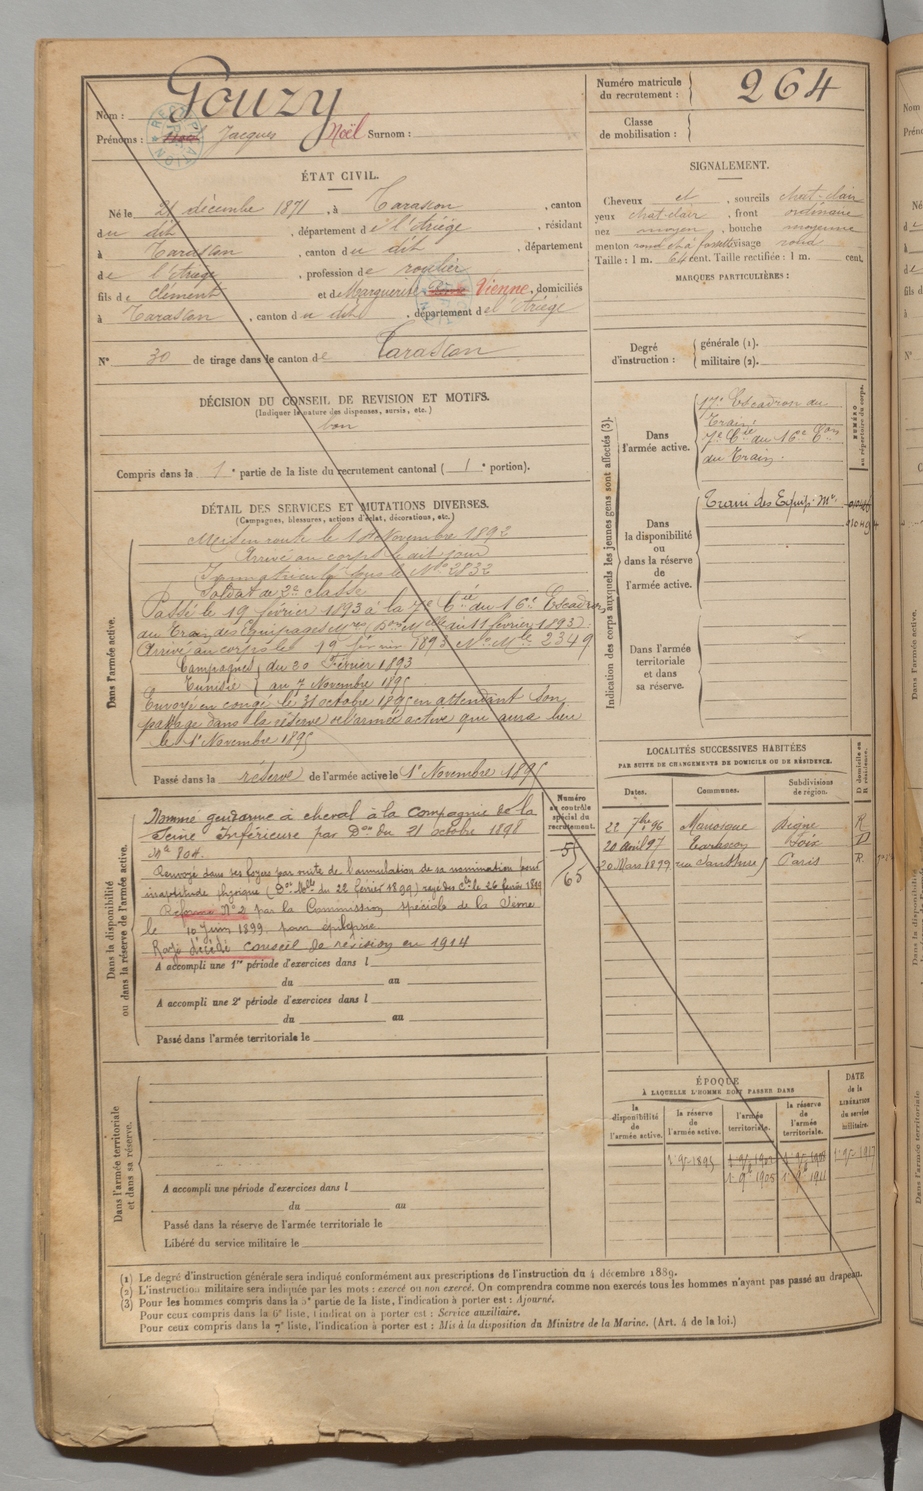 Nom : Pouzy
Prénoms : Jacques Noël Surnom :
RECTIFICATION
Numéro matricule du recrutement : 264
Classe de mobilisation :
ÉTAT CIVIL.
Né le 21 décembre 1871, à Tarascon, canton
du dit, département de l'Ariège, résidant
à Tarascon, canton du dit, département
de l'Ariège, profession de roulier
fils de Clément et de Marguerite Vienne, domiciliés
à Tarascon, canton du dit, département de l'Ariège
N° 30 de tirage dans le canton de Tarascon
SIGNALEMENT.
Cheveux et, sourcils chat-clair
yeux chat-clair, front ordinaire
nez moyen, bouche moyenne
menton rond à fossette visage rond
Taille : 1 m. 64 cent. Taille rectifiée : 1 m. cent.
MARQUES PARTICULIÈRES :
Degré d'instruction : générale (1).
militaire (2).
DÉCISION DU CONSEIL DE REVISION ET MOTIFS.
(Indiquer la nature des dispenses, sursis, etc.)
bon
Compris dans la 1e partie de la liste du recrutement cantonal ( 1e portion).
DÉTAIL DES SERVICES ET MUTATIONS DIVERSES.
(Campagnes, blessures, actions d'éclat, décorations, etc.)
Dans l'armée active.
Mis en route le 1 Novembre 1892
Arrivé au corps le dit jour
Immatriculé sous le N° 2832
Soldat de 2e classe
Passé le 19 février 1893 à la 7e Cie du 16e Escadron
du Train des Equipages Mres (Don Mlle du 11 février 1893).
Arrivé au corps le 19 février 1893 N° Mle 2349
Campagnes du 20 Février 1893
Tunisie au 7 Novembre 1895
Envoyé en congé le 31 octobre 1895 en attendant son
passage dans la réserve de l'armée active qui aura lieu
le 1er Novembre 1895
Passé dans la réserve de l'armée active le 1er Novembre 1895
Indication des corps auxquels les jeunes gens sont affectés (3).
NUMÉRO au répertoire du corps.
Dans l'armée active.
17e Escadron du
Train.
7e Cie du 16e Eon
du Train.
Dans la disponibilité ou dans la réserve de l'armée active.
Train des Equip. Mres
Dans l'armée territoriale et dans sa réserve.
Dans la disponibilité ou dans la réserve de l'armée active.
Numéro au contrôle spécial du recrutement.
Nommé gendarme à cheval à la Compagnie de la
Seine Inférieure par Don du 21 octobre 1898
N° 804.
Renvoyé dans ses foyers par suite de l'annulation de sa nomination pour
inaptitude physique (Don Mlle du 22 février 1899) rayé des Cles le 26 février 1899
Réformé N° 2 par la Commission spéciale de la Seine
le 10 Juin 1899 pour épilepsie
Rayé décédé conseil de révision en 1914
A accompli une 1re période d'exercices dans l
du au
A accompli une 2e période d'exercices dans l
du au
Passé dans l'armée territoriale le
LOCALITÉS SUCCESSIVES HABITÉES
PAR SUITE DE CHANGEMENTS DE DOMICILE OU DE RÉSIDENCE.
Dates. Communes. Subdivisions de région. D domicile ou R résidence.
22 7bre 96 Manosque Digne R
20 avril 97 Tarascon Foix D
20 Mars 1899 Paris R.
ÉPOQUE
À LAQUELLE L'HOMME DOIT PASSER DANS
la disponibilité de l'armée active.
la réserve de l'armée active.
l'armée territoriale.
la réserve de l'armée territoriale.
DATE de la LIBÉRATION du service militaire.
1er 9bre 1895
1er 9bre 1905 1er 9bre 1911 1er 9bre 1917
Dans l'armée territoriale et dans sa réserve.
A accompli une période d'exercices dans l
du au
Passé dans la réserve de l'armée territoriale le
Libéré du service militaire le
(1) Le degré d'instruction générale sera indiqué conformément aux prescriptions de l'instruction du 4 décembre 1889.
(2) L'instruction militaire sera indiquée par les mots : exercé ou non exercé. On comprendra comme non exercés tous les hommes n'ayant pas passé au drapeau.
(3) Pour les hommes compris dans la 5e partie de la liste, l'indication à porter est : Ajourné.
Pour ceux compris dans la 6e liste, l'indication à porter est : Service auxiliaire.
Pour ceux compris dans la 7e liste, l'indication à porter est : Mis à la disposition du Ministre de la Marine. (Art. 4 de la loi.)